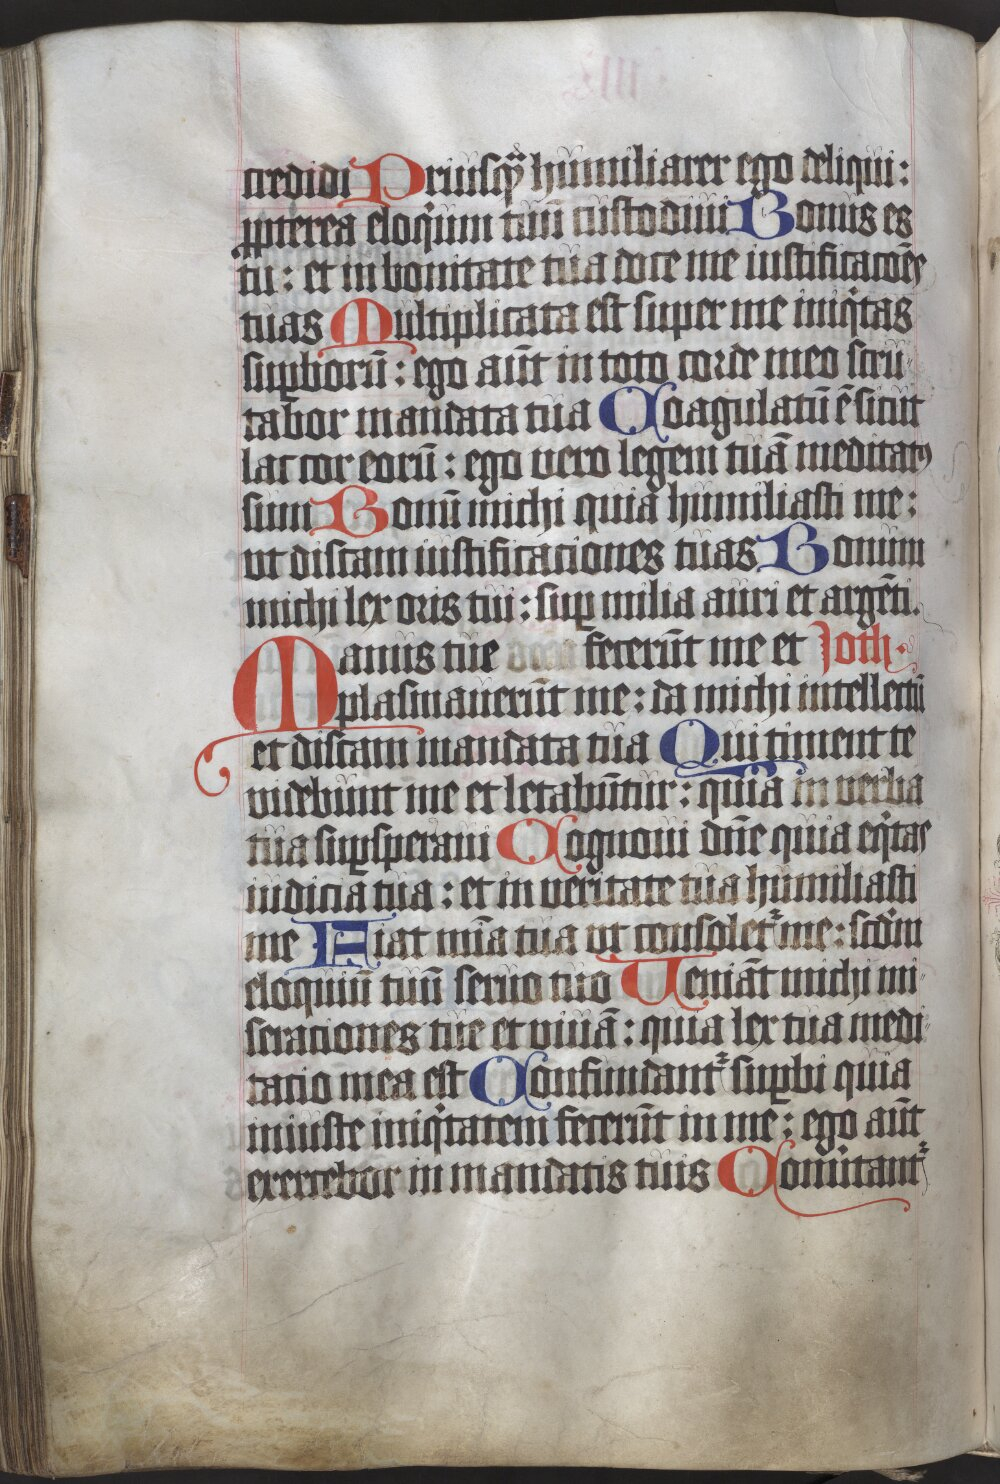 credidi Priusq̃ humiliarer ego deliqui :
ꝓpterea eloq̇um tuū custodiui Bonus es
tu : et in bonitate tua doce me iustificacōēs
tuas Multiplicata est super me iniq̇tas
suꝑborū : ego aūt in toto corde meo scru-
tabor mandata tua Coagulatū ē sicut
lac cor eorū : ego vero legem tuā meditatꝰ
sum Bonū michi quia humiliasti me :
ut discam iustificaciones tuas Bonum
michi lex oris tui : suꝑ milia auri et argēti.
Manus tue fecerūt me et Joth.
plasmauerūt me : da michi intellectū
et discam mandata tua Qui timent te
videbunt me et letabūtur : quia in verba
tua suꝑsperaui Cognoui dn̄e quia eq̇tas
iudicia tua : et in veritate tua humiliasti
me Fiat mīa tua ut consolet᷑ me : scd̄m
eloquiū tuū seruo tuo Ueniāt michi mi-
seraciones tue et viuā : quia lex tua medi-
tacio mea est Confundant᷑ suꝑbi quia
iniuste iniq̇tatem fecerūt in me : ego aūt
exercebor in mandatis tuis Conuertant᷑